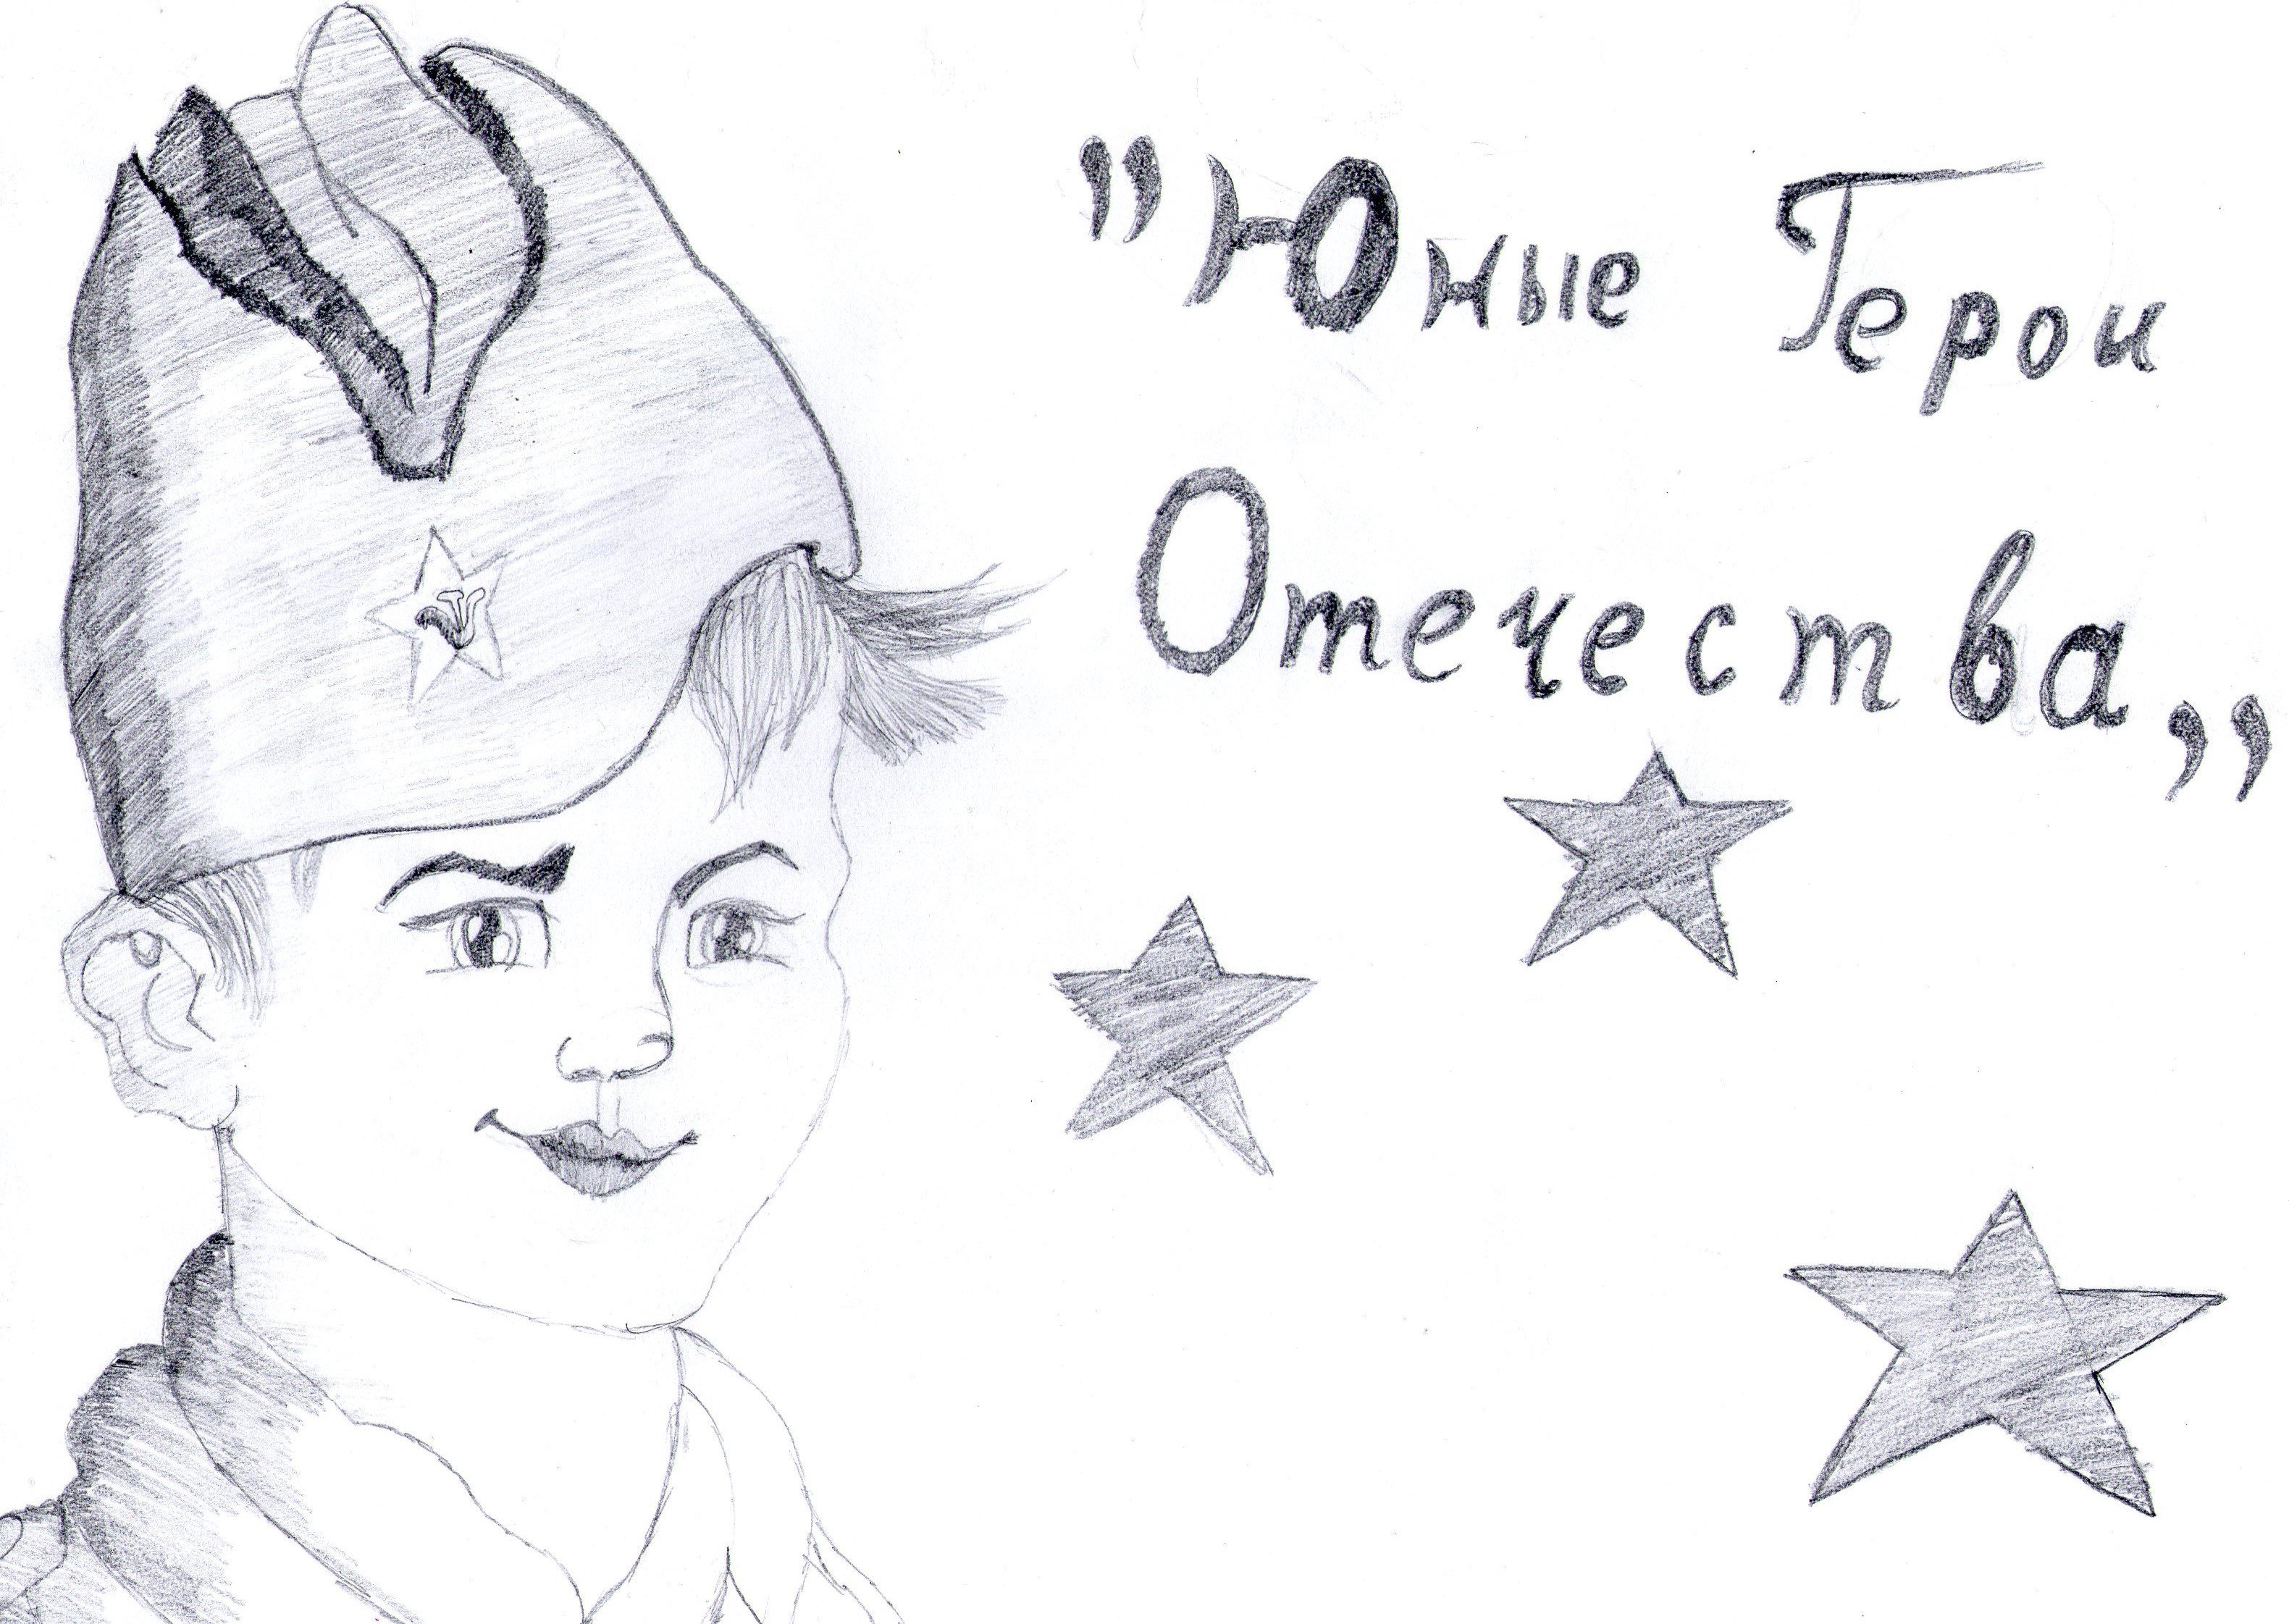 "Юные Герои
Отечества„